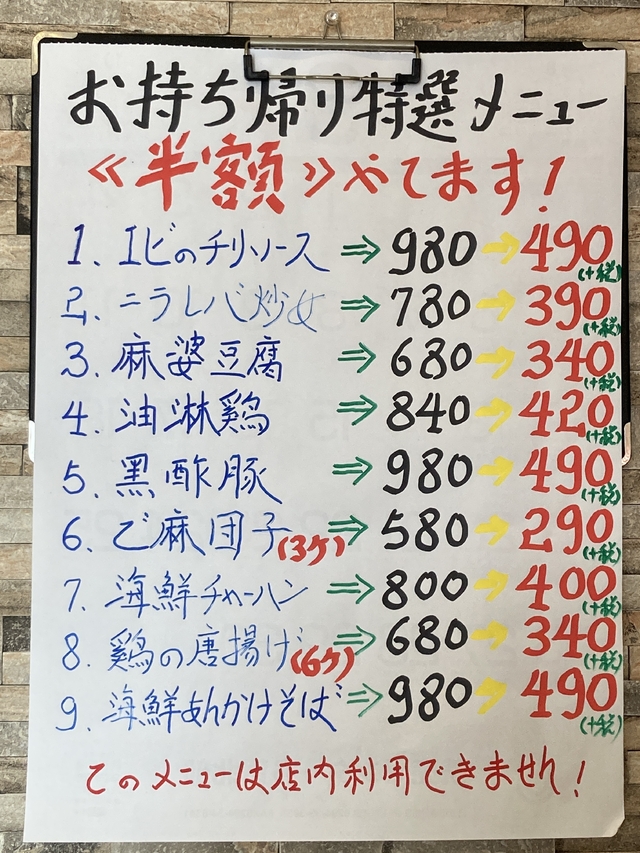 お持ち帰り特選メニュー
《半額》やてます!
1. エビのチリソース ⇒ 980 → 490 (+税)
2. ニラレバ炒女 ⇒ 780 → 390 (+税)
3. 麻婆豆腐 ⇒ 680 → 340 (+税)
4. 油淋鶏 ⇒ 840 → 420 (+税)
5. 黒酢豚 ⇒ 980 → 490 (+税)
6. ご麻団子(3ケ) ⇒ 580 → 290 (+税)
7. 海鮮チャーハン ⇒ 800 → 400 (+税)
8. 鶏の唐揚げ(6ケ) ⇒ 680 → 340 (+税)
9. 海鮮あんかけそば ⇒ 980 → 490 (+税)
このメニューは店内利用できません!